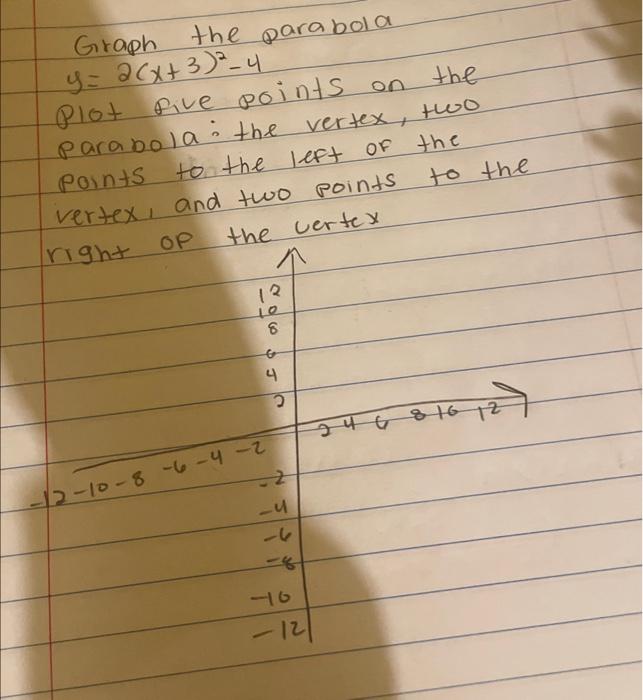 Graph the parabola
y= 2(x+3)²-4
Plot five points on the
parabola: the vertex, two
points to the left of the
vertex, and two points to the
right of the vertex
12
10
8
6
4
2
2 4 6 8 10 12
-12 -10 -8 -6 -4 -2
-2
-4
-6
-8
-10
-12